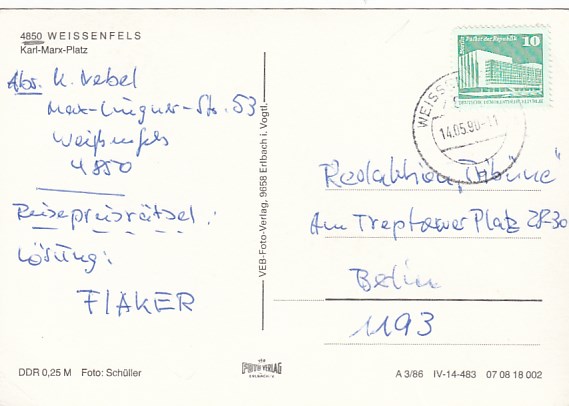 4850 WEISSENFELS
Karl-Marx-Platz
Abs. K. Nebel
Max-Lingner-Str. 53
Weißenfels
4850
Reisepreisrätsel:
Lösung:
FIAKER
DDR 0,25 M Foto: Schüller
VEB-Foto-Verlag, 9658 Erlbach i. Vogtl.
FOTO VERLAG
ERLBACH
10
Palast der Republik
WEISSEN
14.05.90-11
Redaktion „Tribüne"
Am Treptower Platz 28-30
Berlin
1193
A 3/86 IV-14-483 07 08 18 002